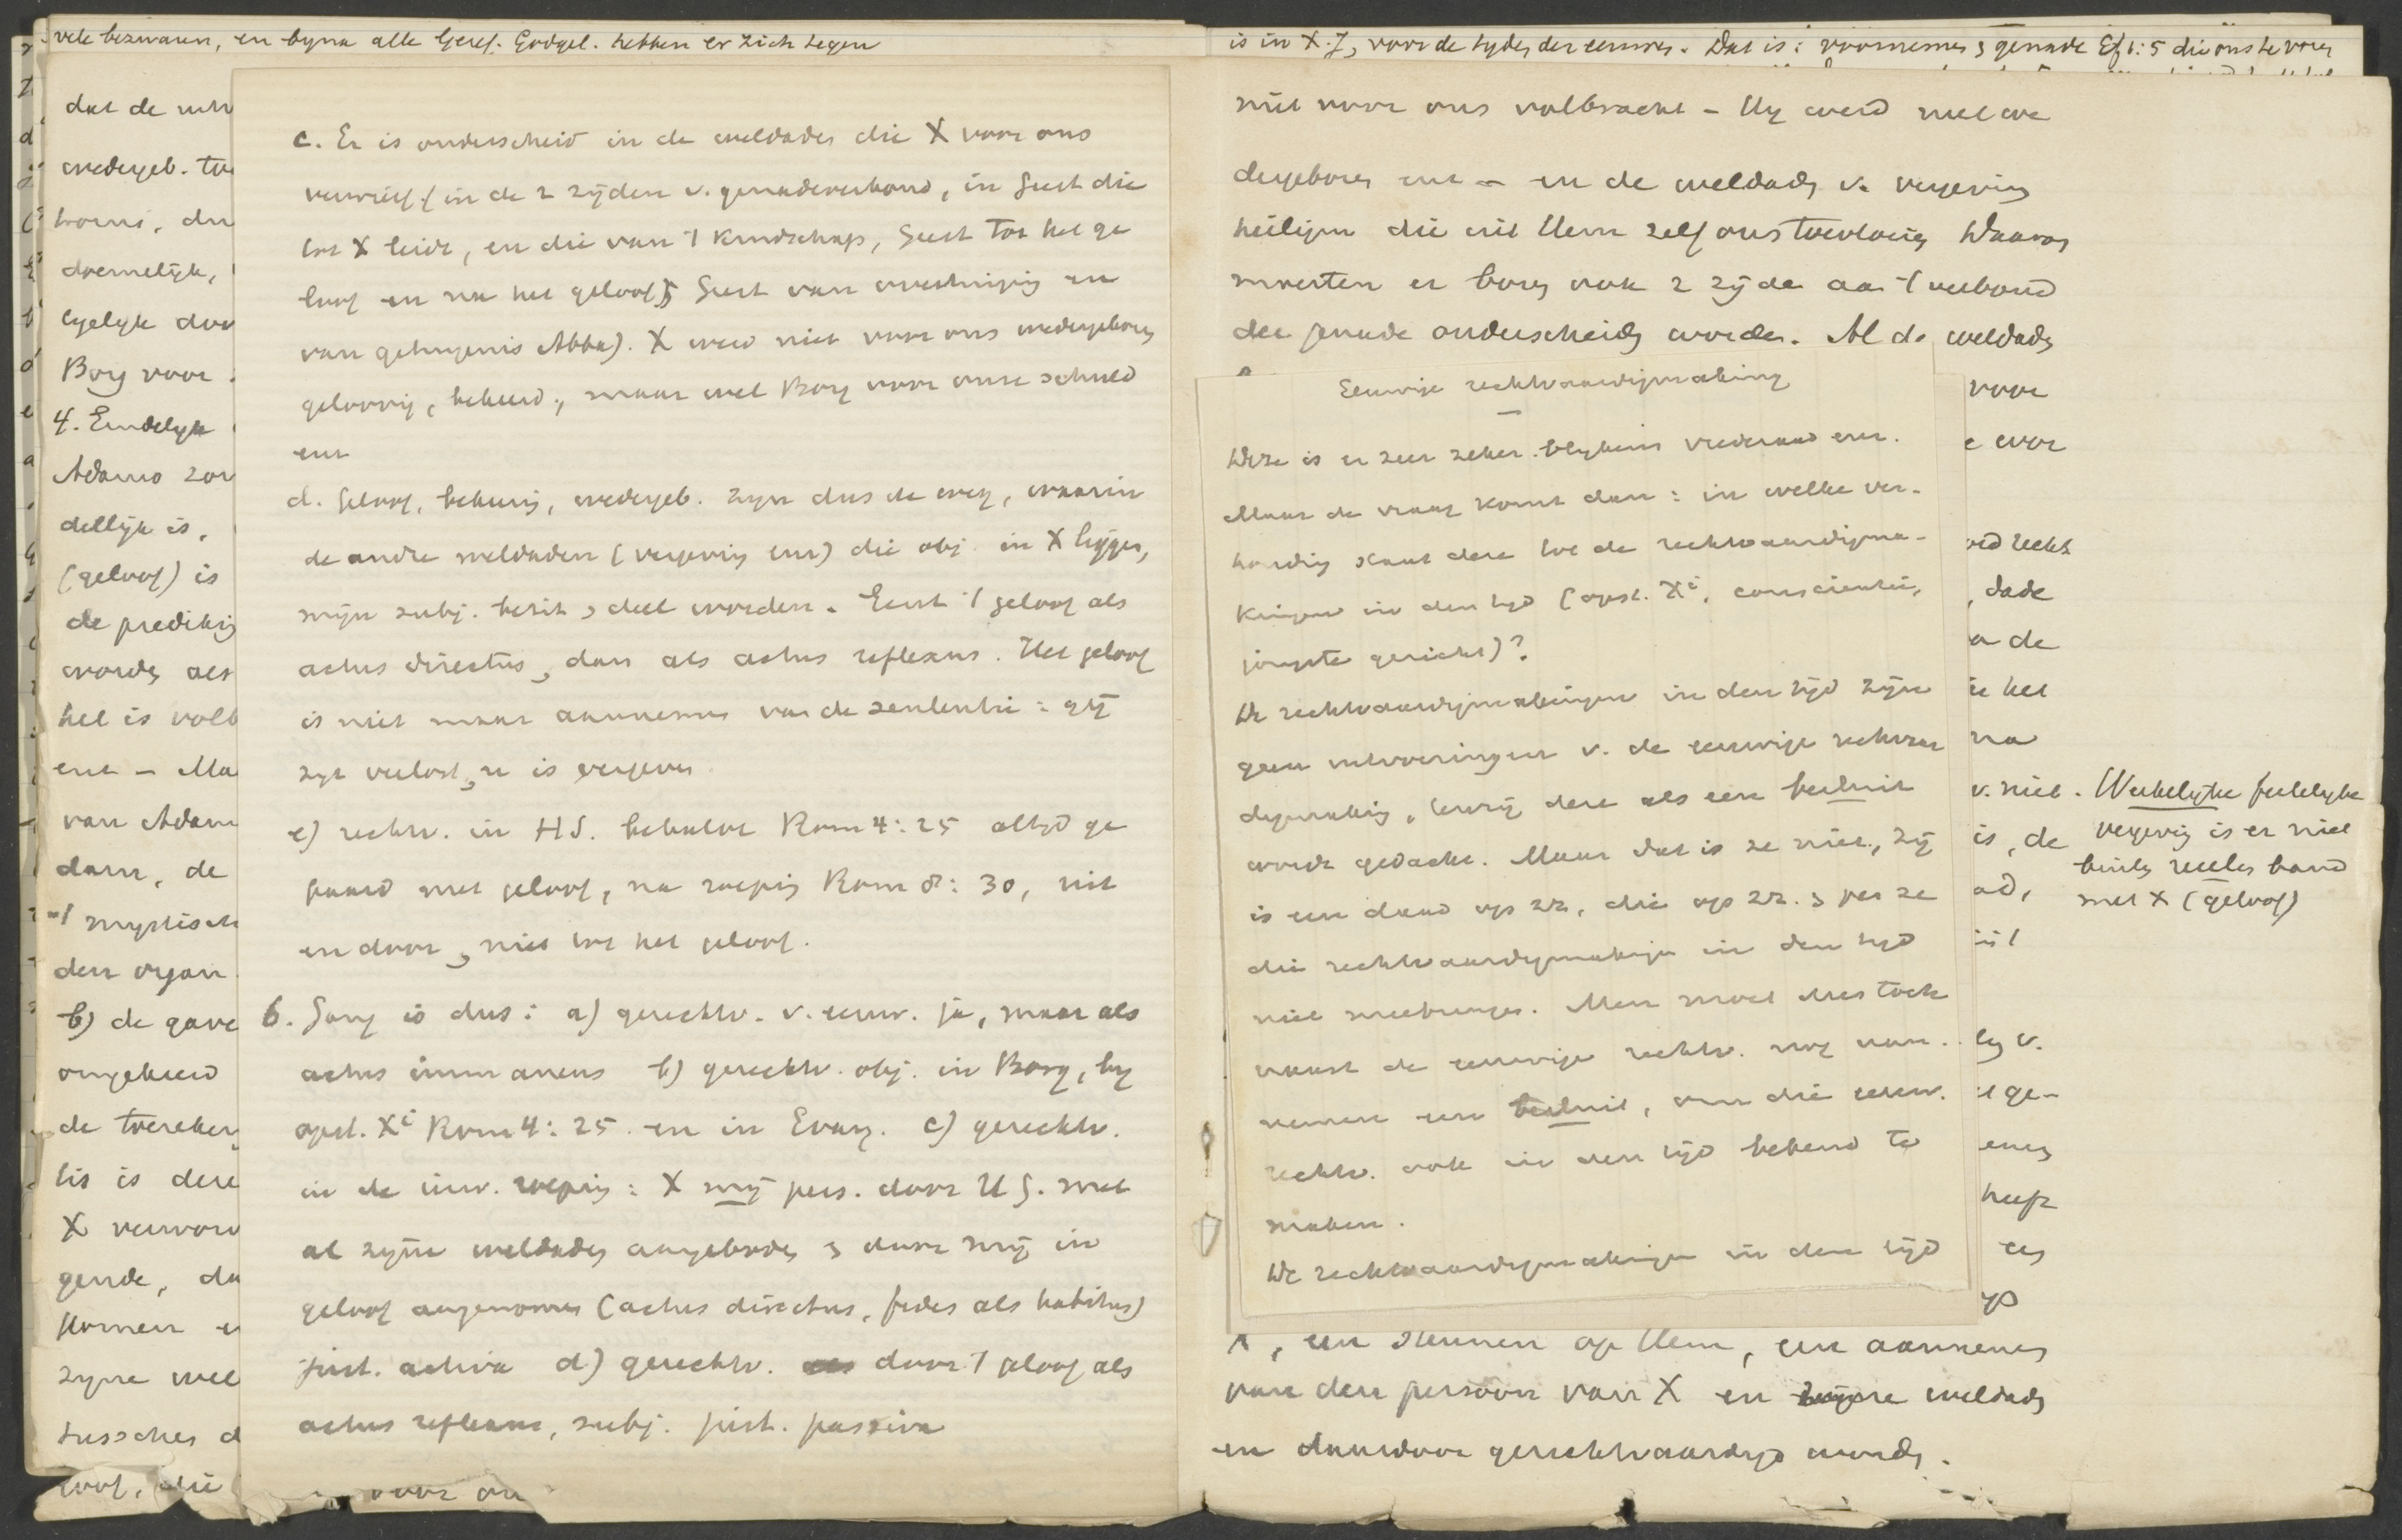 vele bezwaren, en byna alle Geref. Godgel. hebben er zich tegen
dat de
wedergeb.
doemelijk,
Borg voor
4. Eindelyk
Adamo
dellijk is,
(geloof) is
de prediking
worden als
het is volb
ent - Ma
van Adam
dam, de
't mystisch
den organ
b) de gave
omgekeerd
de toereken
tis is deze
X verworv
gende, da
komen e
zyne wel
tusschen d
loof, die
voor on
c. Er is onderscheid in de weldaden die X voor ons
verwierf (in de 2 zijden v. genadeverbond, in Geest die
tot X leidt, en die van 't kindschap, Geest tot het ge
loof en na het geloof; Geest van overtuiging en
van getuigenis Abba). X werd niet voor ons wedergeboren
geloovig, bekeerd, maar wel Borg voor onze schuld
enz
d. Geloof, bekeering, wedergeb. zyn dus de weg, waarin
de andre weldaden (vergeving enz) die obj. in X liggen,
mijn subj. bezit & deel worden. Eerst 't geloof als
actus directus, dan als actus reflexus. Het geloof
is niet maar aannemen van de sententie: gij
zyt verlost, u is vergeven
e) rechtv. in HS. behalve Rom 4:25 altyd ge
paard met geloof, na roeping Rom 8:30, uit
en door, niet tot het geloof.
6. Gang is dus: a) gerechtv. v. eeuw. ja, maar als
actus immanens b) gerechtv. obj. in Borg, by
opst. Xi Rom 4:25 en in Evang. c) gerechtv.
in de inw. roeping: X mij pers. door H G. met
al zyne weldaden aangeboden & door mij in
geloof aangenomen (actus directus, fides als habitus)
just. activa d) gerechtv. door 't geloof als
actus reflexus, subj. just. passiva
is in X.J, voor de tyden der eeuwen. Dat is: voornemen & genade Ef 1:5 die ons te voren
niet voor ons volbracht - Hy werd niet we
dergeboren enz - en de weldaden v. vergeving
heiligm die uit Hem zelf ons toevloeien Daarom
moesten er boven ook 2 zijde aan 't verbond
der genade onderscheiden worden. Al de weldaden
Eeuwige rechtvaardigmaking
Deze is er zeer zeker. blykens vrederaad enz.
Maar de vraag komt dan: in welke ver-
houding staat deze tot de rechtvaardigma-
kingen in den tijd (opst. Xi, conscientie,
jongste gericht)?
De rechtvaardigmakingen in den tijd zijn
geen uitvoeringen v. de eeuwige rechtvaar
digmaking, tenzij deze als een besluit
wordt gedacht. Maar dat is ze niet, zij
is een daad op zz, die op zz. & per se
die rechtvaardigmakingen in den tyd
niet meebrengen. Men moet dus toch
naast de eeuwige rechtv. nog aan-
nemen een besluit, om die eeuw.
rechtv. ook in den tijd bekend te
maken.
De rechtvaardigmakingen in den tijd
voor
recht
dade
a de
het
na
v. niet.
is, de
ge-
heeft
Werkelyke feitelyke
vergeving is er niet
buiten reëelen band
met X (geloof)
X, een steunen op Hem, een aannemen
van den persoon van X en zyne weldaden
en daardoor gerechtvaardigd worden.